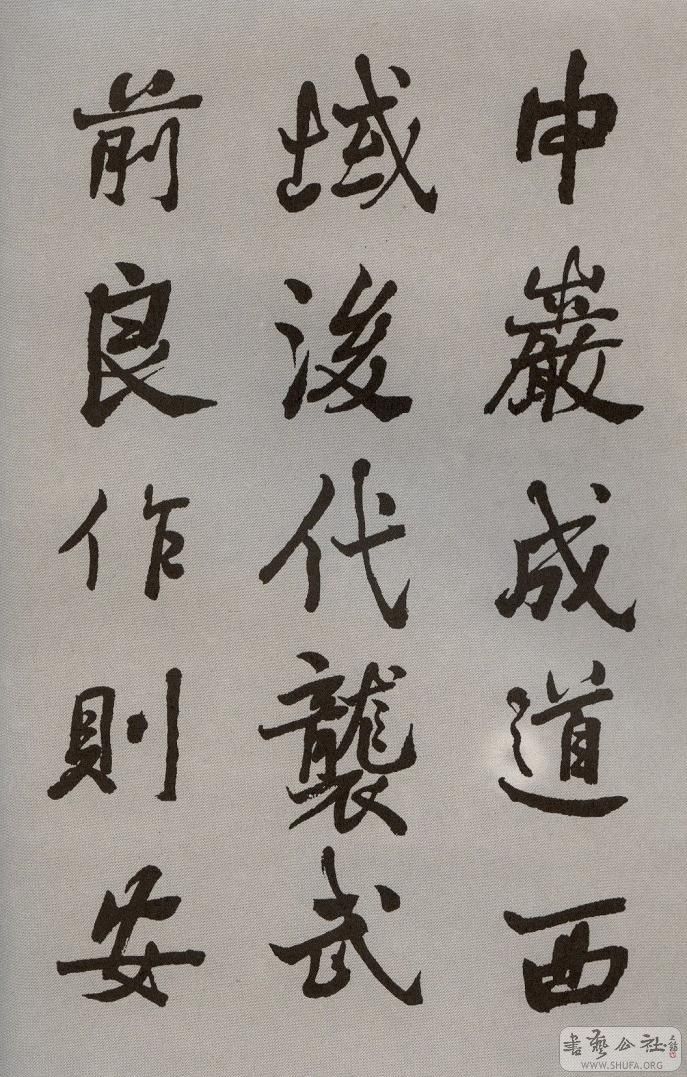 申巖成道西
域浚代襲武
前良作則安
書藝公社
WWW.SHUFA.ORG